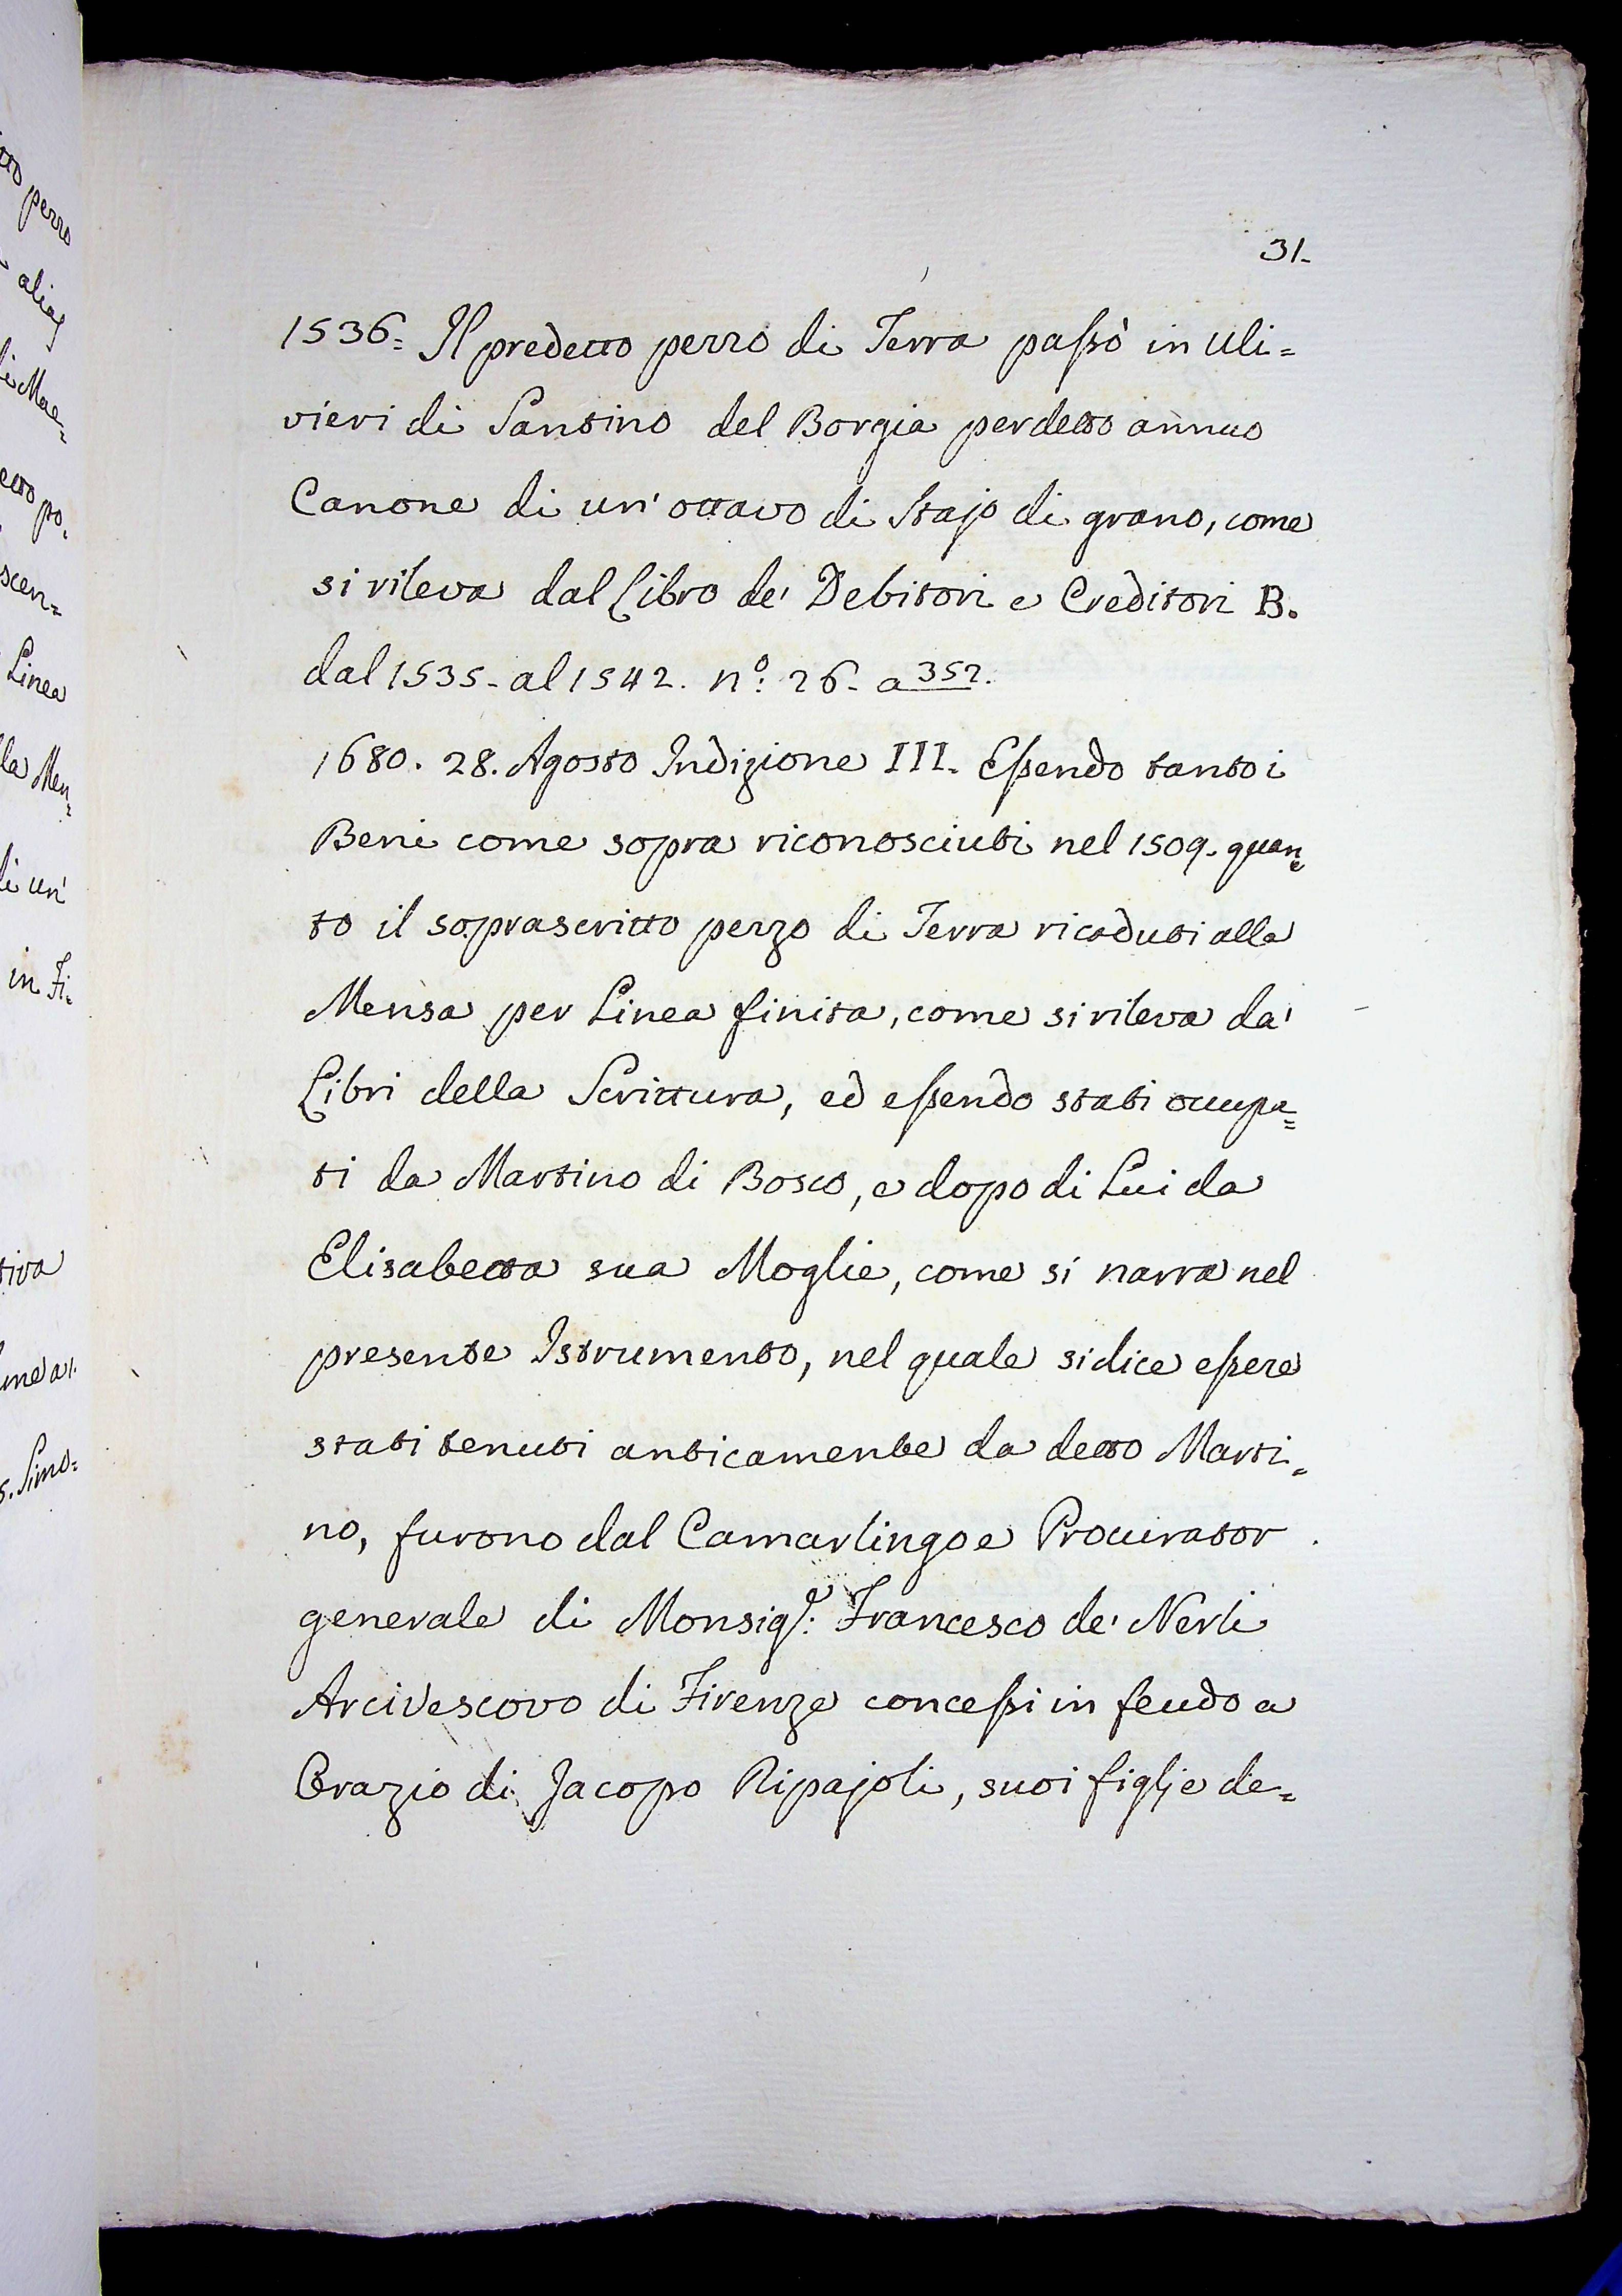 31.
1536= Il predetto pezzo di Terra paſsò in Uli=
vieri di Santino del Borgia per detto annuo
Canone di un' ottavo di Stajo di grano, come
si rileva dal Libro de' Debitori e Creditori B.
dal 1535. al 1542. n.º 26. a 352.
1680. 28. Agosto Indizione III. Eſsendo tanto i
Beni come sopra riconosciuti nel 1509. quan=
to il soprascritto pezzo di Terra ricaduti alla
Mensa per Linea finita, come si rileva da'
Libri della Scrittura, ed eſsendo stati occupa=
ti da Martino di Bosco, e dopo di Lui da
Elisabetta sua Moglie, come si narra nel
presente Istrumento, nel quale si dice eſsere
stati tenuti anticamente da detto Marti=
no, furono dal Camarlingo e Procurator
generale di Monsig.e Francesco de' Nerli
Arcivescovo di Firenze conceſsi in feudo a
Orazio di Jacopo Ripajoli, suoi figlj e de=